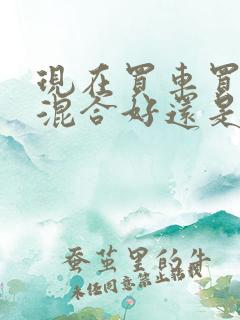 現在買車買
混合好還是
蚕茧里的牛
未经同意禁止转载